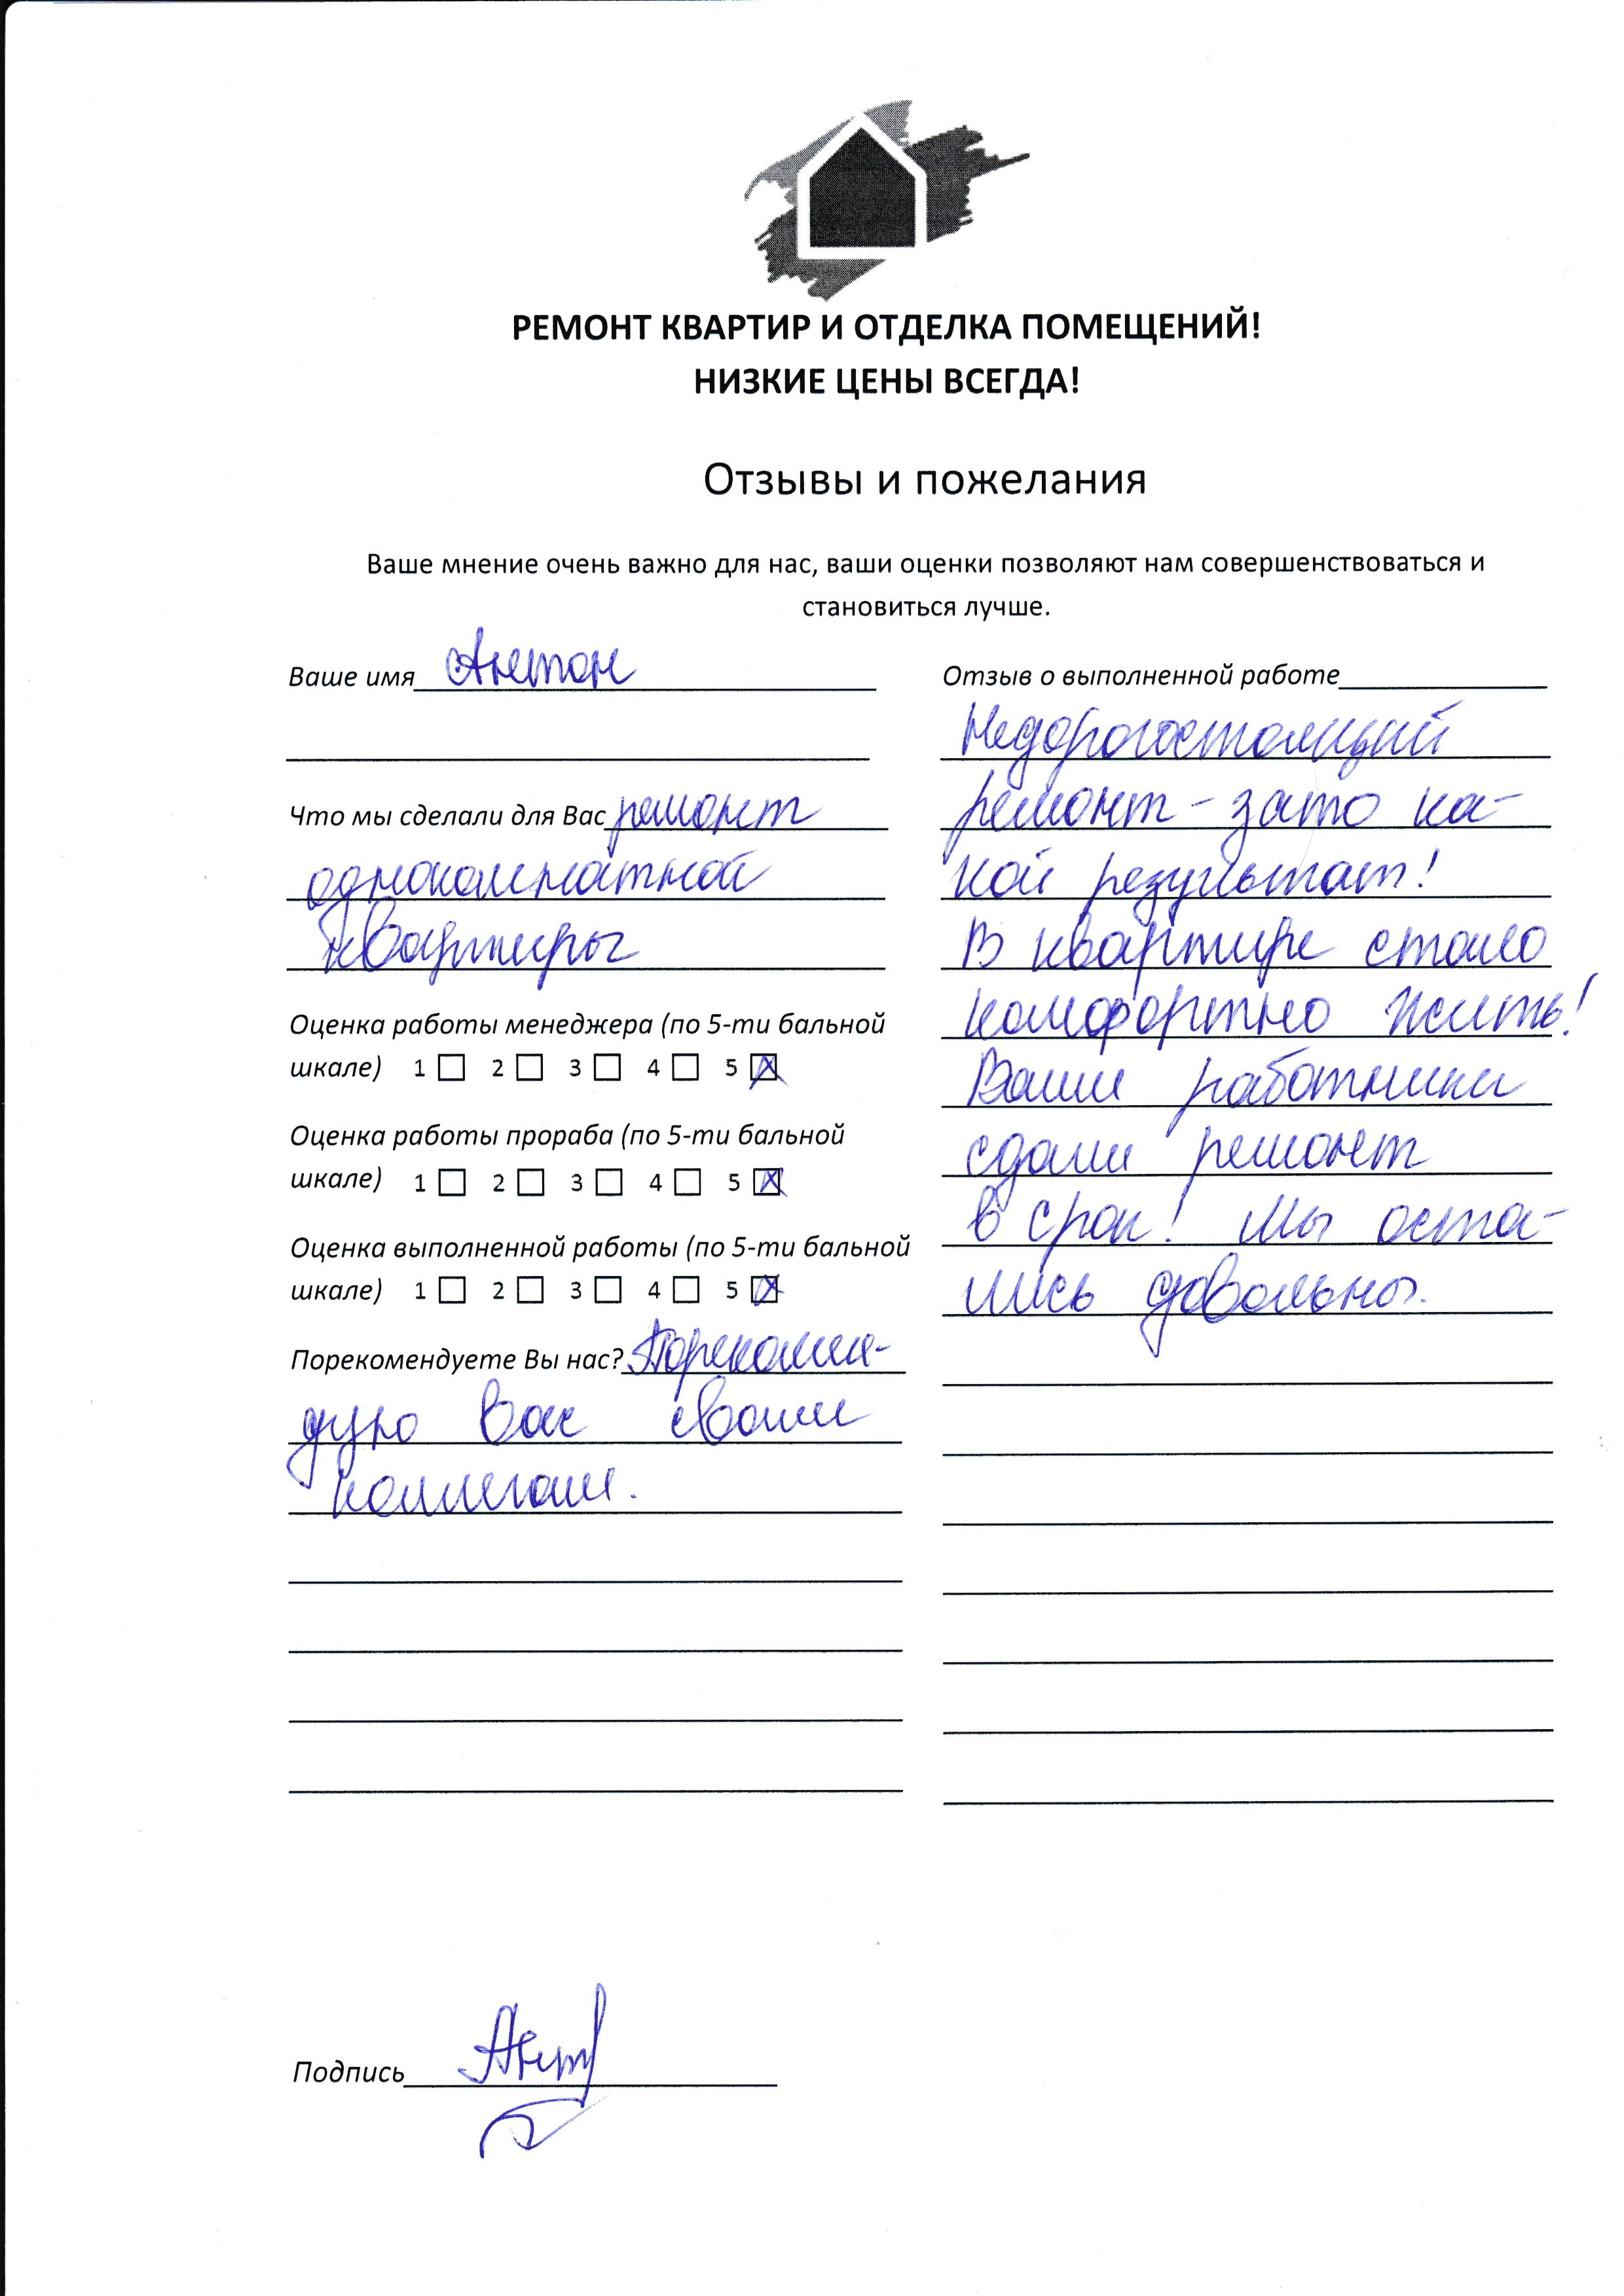 РЕМОНТ КВАРТИР И ОТДЕЛКА ПОМЕЩЕНИЙ!
НИЗКИЕ ЦЕНЫ ВСЕГДА!
Отзывы и пожелания
Ваше мнение очень важно для нас, ваши оценки позволяют нам совершенствоваться и
становиться лучше.
Ваше имя Антон
Что мы сделали для Вас ремонт
однокомнатной
квартиры
Оценка работы менеджера (по 5-ти бальной
шкале) 1 2 3 4 5
Оценка работы прораба (по 5-ти бальной
шкале) 1 2 3 4 5
Оценка выполненной работы (по 5-ти бальной
шкале) 1 2 3 4 5
Порекомендуете Вы нас? Порекомен-
дую Вас своим
коллегам.
Отзыв о выполненной работе
Недорогостоящий
ремонт - зато ка-
кой результат!
В квартире стало
комфортно жить!
Ваши работники
сдали ремонт
в срок! Мы оста-
лись довольны.
Подпись